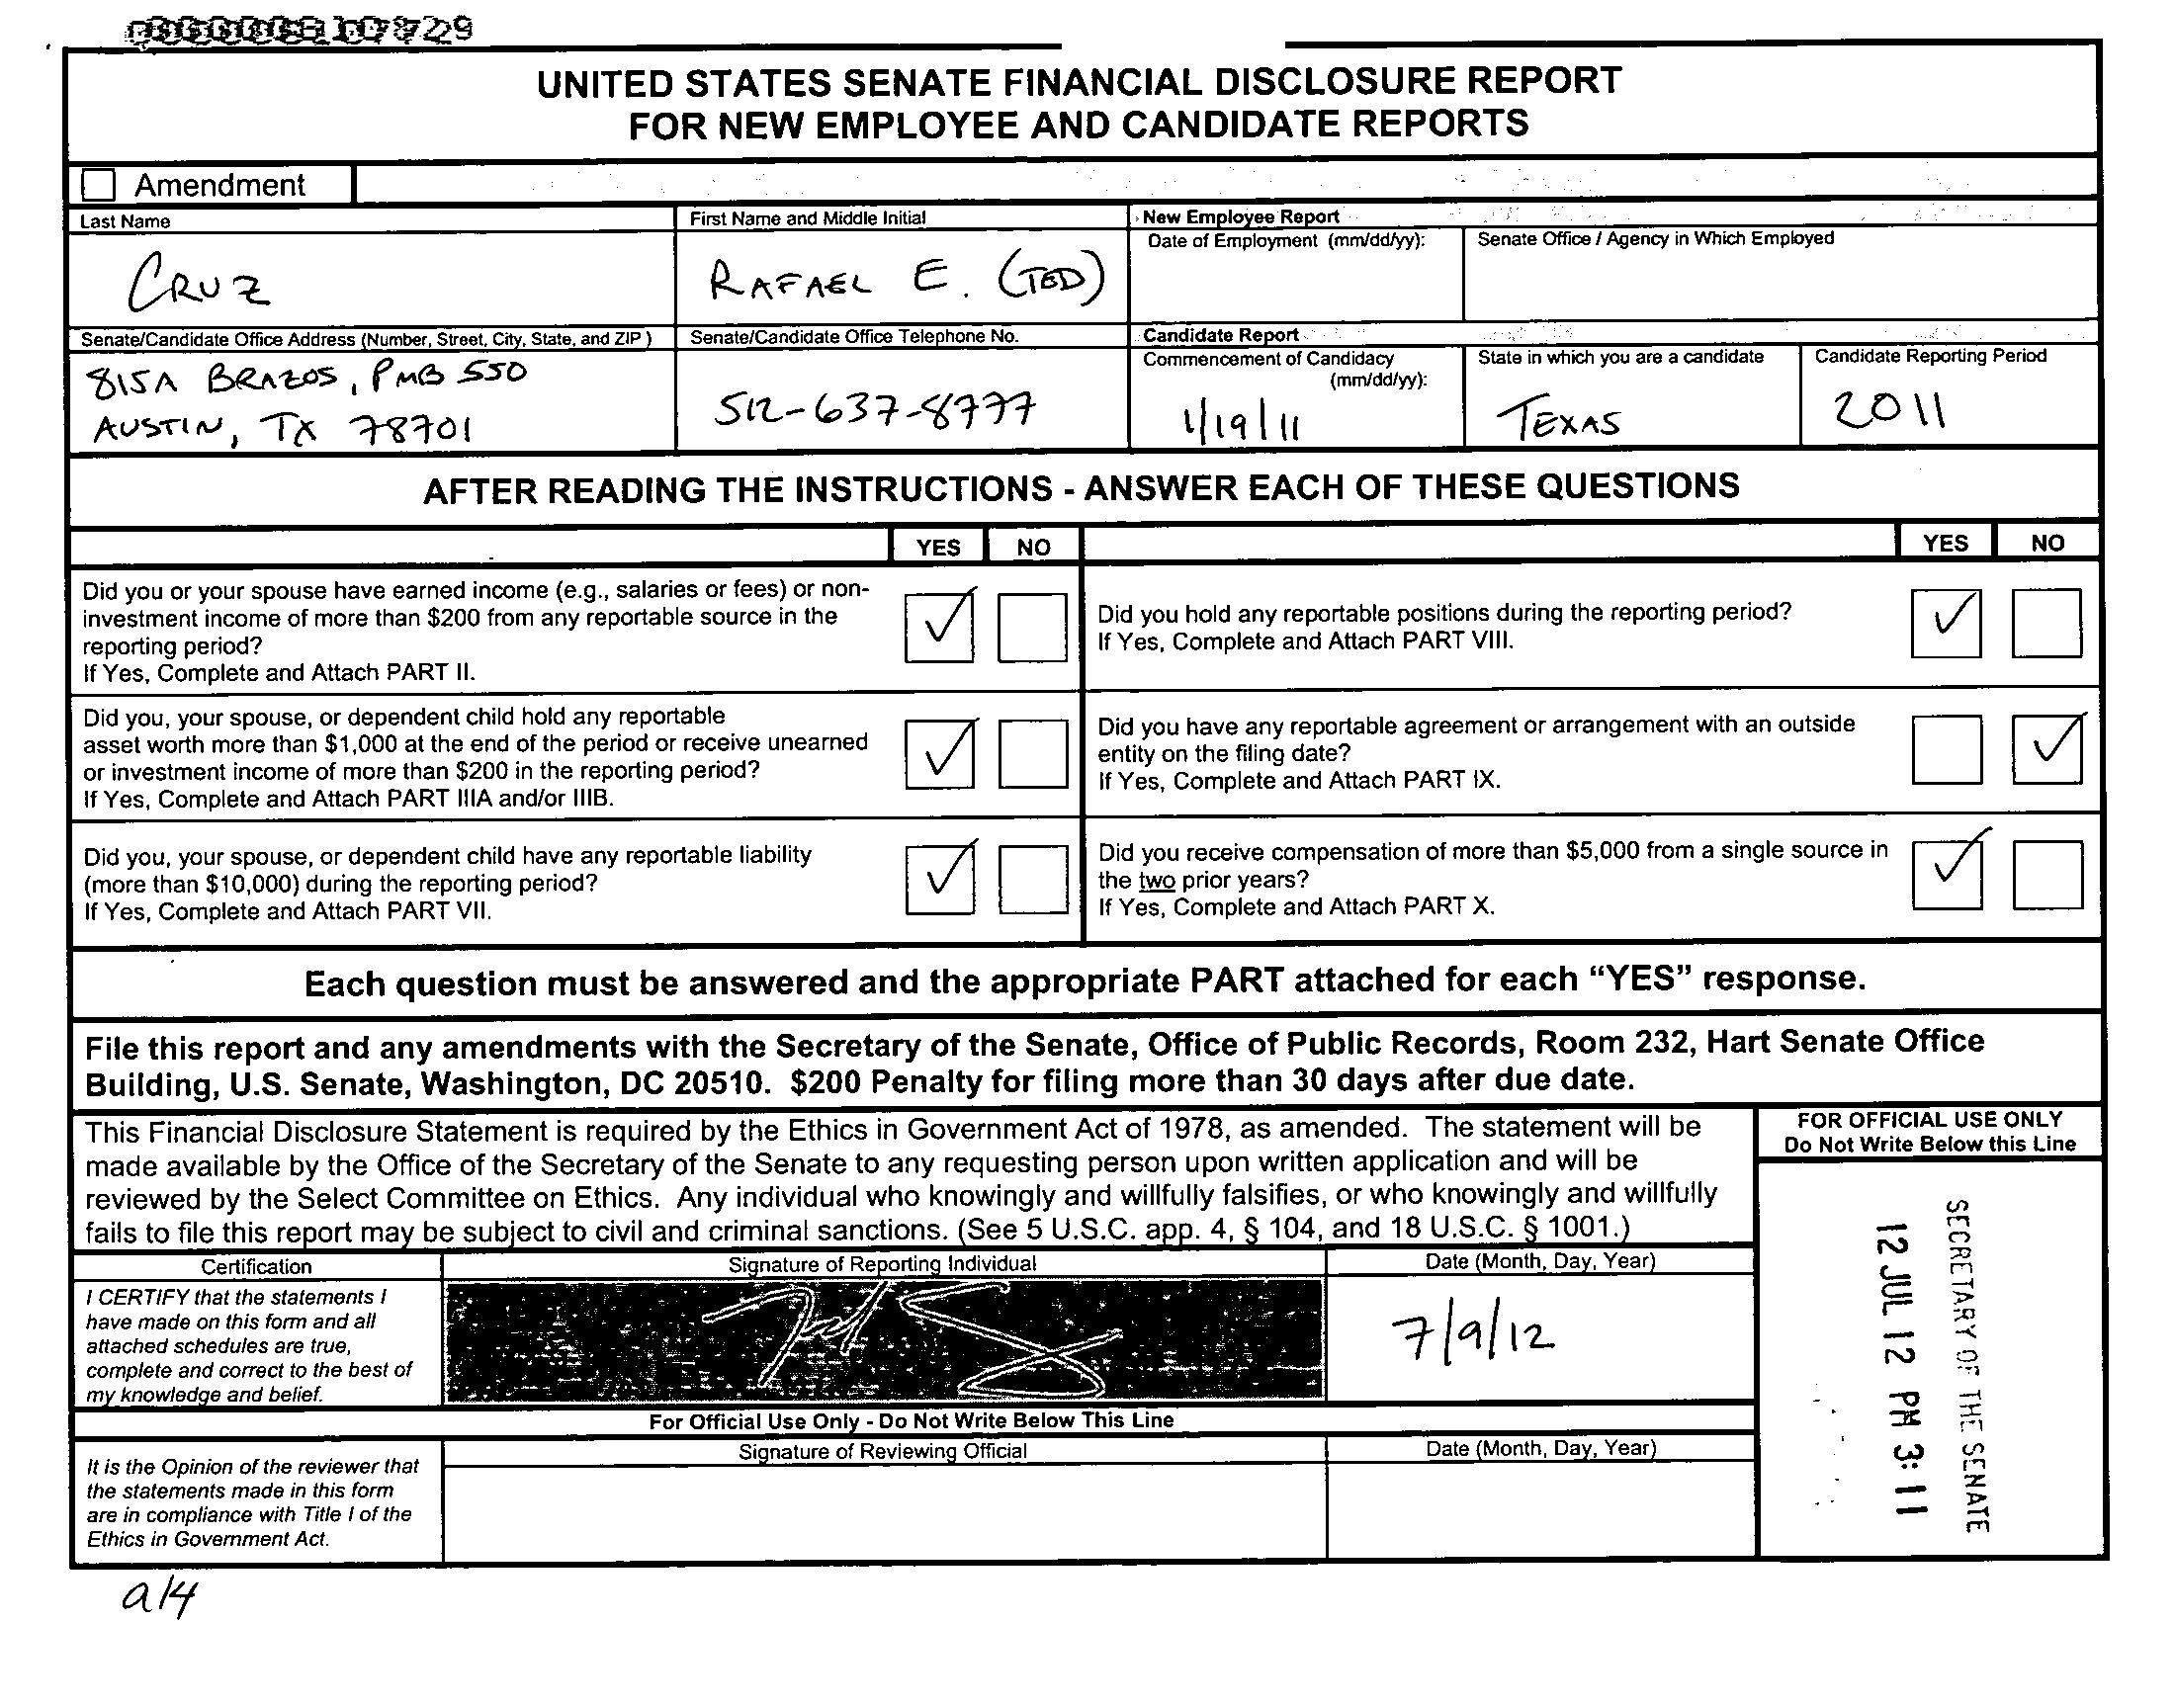 UNITED STATES SENATE FINANCIAL DISCLOSURE REPORT
FOR NEW EMPLOYEE AND CANDIDATE REPORTS
Amendment
Last Name
CRUZ
First Name and Middle Initial
RAFAEL E. (TED)
New Employee Report
Date of Employment (mm/dd/yy):
Senate Office / Agency in Which Employed
Senate/Candidate Office Address (Number, Street, City, State, and ZIP )
815A BRAZOS, PMB 550
AUSTIN, TX 78701
Senate/Candidate Office Telephone No.
512-637-8777
Candidate Report
Commencement of Candidacy
(mm/dd/yy):
1/19/11
State in which you are a candidate
TEXAS
Candidate Reporting Period
2011
AFTER READING THE INSTRUCTIONS - ANSWER EACH OF THESE QUESTIONS
YES NO
YES NO
Did you or your spouse have earned income (e.g., salaries or fees) or non-
investment income of more than $200 from any reportable source in the
reporting period?
If Yes, Complete and Attach PART II.
Did you hold any reportable positions during the reporting period?
If Yes, Complete and Attach PART VIII.
Did you, your spouse, or dependent child hold any reportable
asset worth more than $1,000 at the end of the period or receive unearned
or investment income of more than $200 in the reporting period?
If Yes, Complete and Attach PART IIIA and/or IIIB.
Did you have any reportable agreement or arrangement with an outside
entity on the filing date?
If Yes, Complete and Attach PART IX.
Did you, your spouse, or dependent child have any reportable liability
(more than $10,000) during the reporting period?
If Yes, Complete and Attach PART VII.
Did you receive compensation of more than $5,000 from a single source in
the two prior years?
If Yes, Complete and Attach PART X.
Each question must be answered and the appropriate PART attached for each “YES” response.
File this report and any amendments with the Secretary of the Senate, Office of Public Records, Room 232, Hart Senate Office
Building, U.S. Senate, Washington, DC 20510. $200 Penalty for filing more than 30 days after due date.
This Financial Disclosure Statement is required by the Ethics in Government Act of 1978, as amended. The statement will be
made available by the Office of the Secretary of the Senate to any requesting person upon written application and will be
reviewed by the Select Committee on Ethics. Any individual who knowingly and willfully falsifies, or who knowingly and willfully
fails to file this report may be subject to civil and criminal sanctions. (See 5 U.S.C. app. 4, § 104, and 18 U.S.C. § 1001.)
FOR OFFICIAL USE ONLY
Do Not Write Below this Line
SECRETARY OF THE SENATE
12 JUL 12 PM 3: 11
Certification
Signature of Reporting Individual
Date (Month, Day, Year)
I CERTIFY that the statements I
have made on this form and all
attached schedules are true,
complete and correct to the best of
my knowledge and belief.
7/9/12
For Official Use Only - Do Not Write Below This Line
Signature of Reviewing Official
Date (Month, Day, Year)
It is the Opinion of the reviewer that
the statements made in this form
are in compliance with Title I of the
Ethics in Government Act.